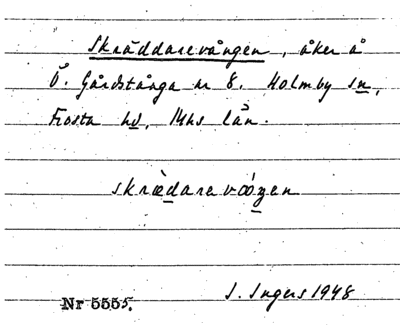 Skräddarevången, åker å
Ö. Gårdstånga nr 8. Holmby sn,
Frosta hd, Mhs län.
skrædarevåŋen
Nr 5555. I. Ingers 1948